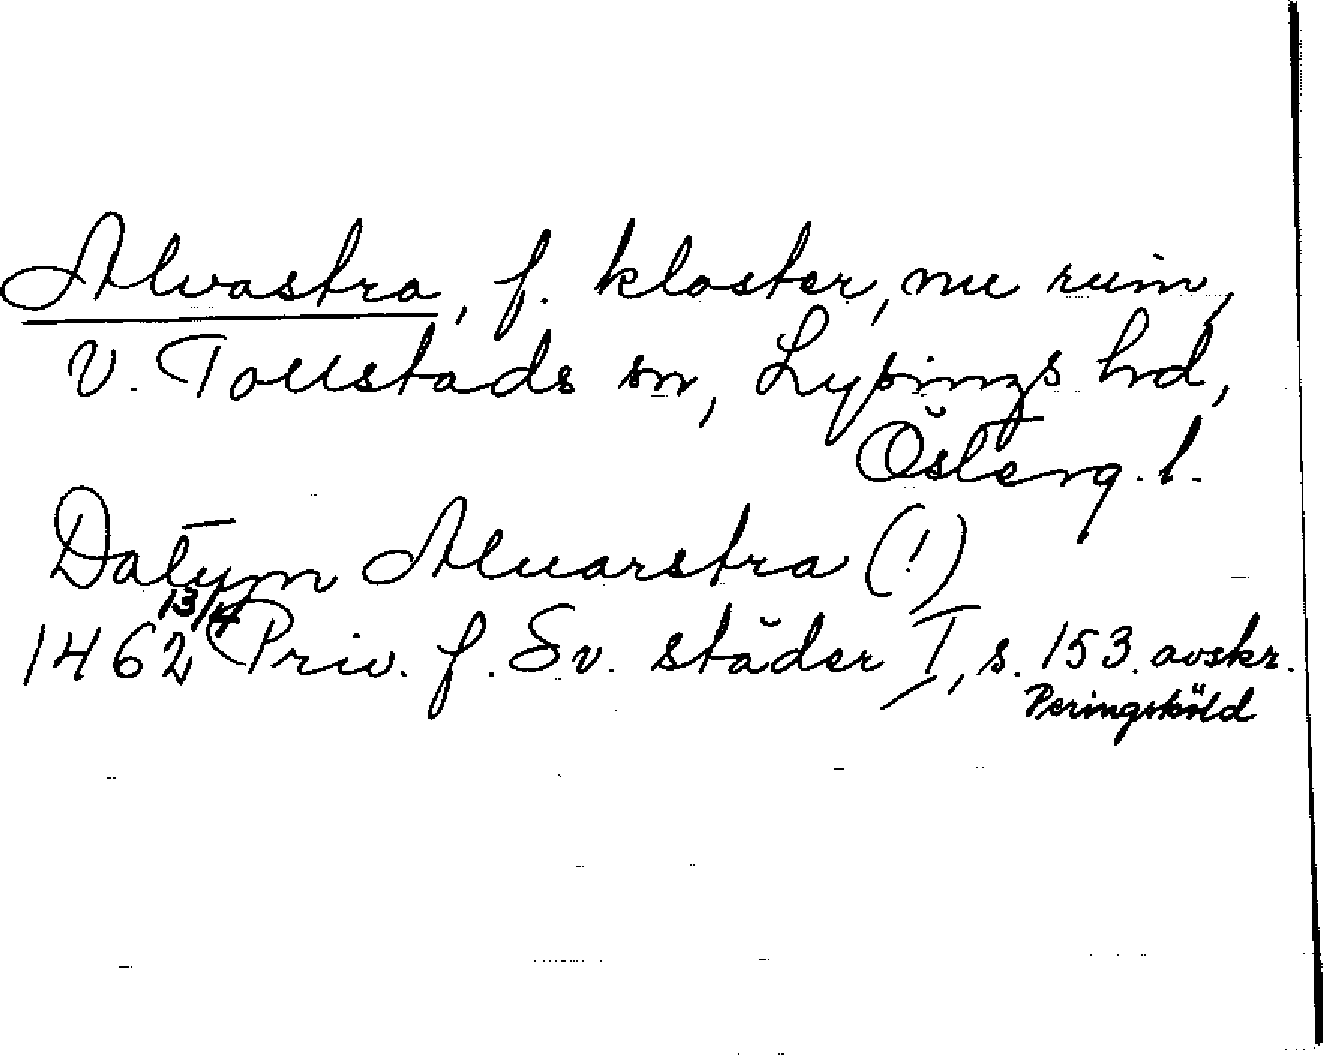 Alvastra, f. kloster, nu ruin,
V. Tollstads sn, Lysings hrd,
Österg. l.
Datum Aluarstra (!)
1462 13/4 Priv. f. Sv. städer I, s. 153. avskr.
Peringsköld